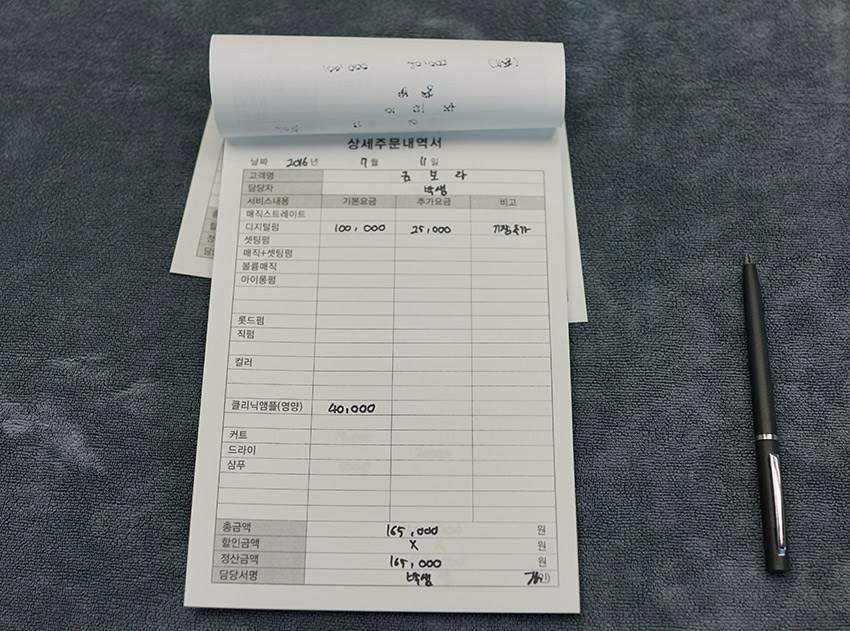 상세주문내역서
날짜 2016년 7월 11일
고객명 금보라
담당자 박쌤
서비스내용 기본요금 추가요금 비고
매직스트레이트
디지털펌 100,000 25,000 기장추가
셋팅펌
매직+셋팅펌
볼륨매직
아이롱펌
롯드펌
직펌
컬러
클리닉앰플(영양) 40,000
커트
드라이
샴푸
총금액 165,000 원
할인금액 X 원
정산금액 165,000 원
담당서명 박쌤 (인)